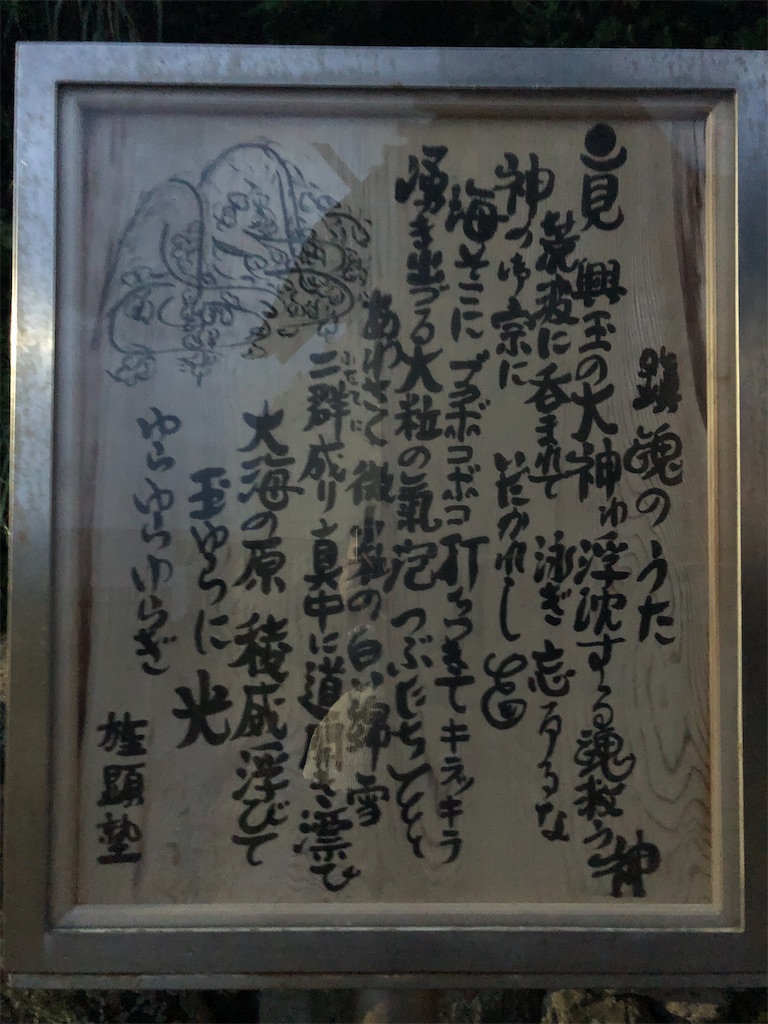 鎮魂のうた
見 興玉の大神は浮沈する魂救う神
荒波に呑まれて 泳ぎ忘るるな
神の御宗に いだかれし
海そこに ブクボコボコ 打ちつきて キラッキラ
湧き出づる大粒の氣泡 つぶだちてとと
あわさく 微小粒の 白い綿雪
二群成りと真中に道 開き 漂ひ
ふたてに
大海の原 稜威浮びて
玉ゆらに 光
ゆらゆらゆらぎ
顕塾